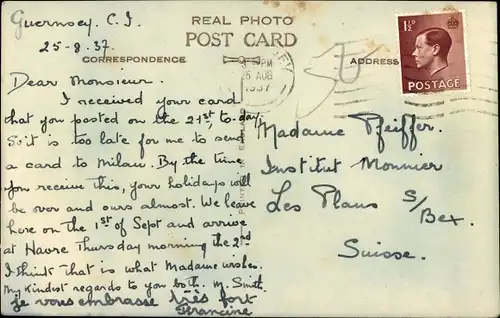 Guernsey. C.I.
25-8.37.
REAL PHOTO
POST CARD
CORRESPONDENCE
ADDRESS
1½D
POSTAGE
PM
25 AUG
1937
Dear Monsieur.
I received your card
that you posted on the 21st, to-day.
So it is too late for me to send
a card to Milan. By the time
you receive this, your holidays will
be over and ours almost. We leave
here on the 1st of Sept and arrive
at Havre Thursday morning the 2nd
I think that is what Madame wishes.
My kindest regards to you both. M. Smith.
je vous embrasse très fort
Francine
Madame Pfeiffer.
Institut Monnier
Les Plans s/
Bex.
Suisse.